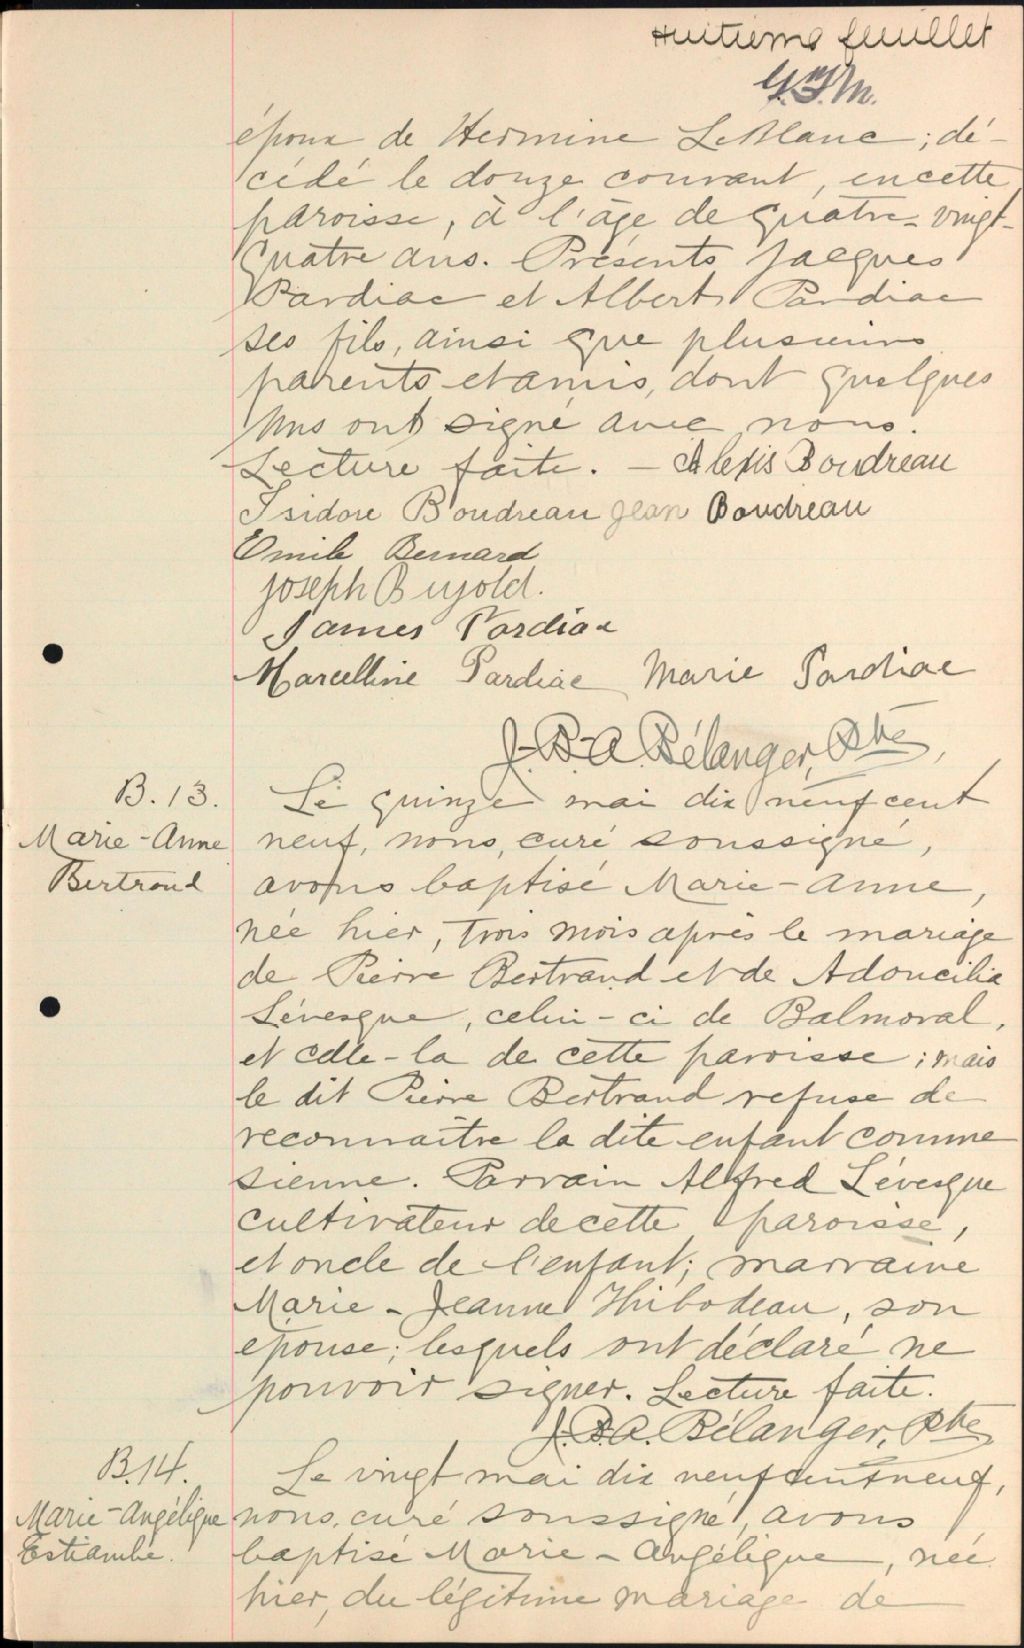 Huitième feuillet
époux de Hermine LeBlanc; dé-
cédé le douze courant, en cette
paroisse, à l'âge de quatre-vingt-
quatre ans. Présents Jacques
Pardiac et Albert Pardiac
ses fils, ainsi que plusieurs
parents et amis, dont quelques
uns ont signé avec nous.
Lecture faite. — Alexis Boudreau
Isidore Boudreau Jean Boudreau
Emile Bernard
Joseph Bujold.
James Pardiac
Marcelline Pardiac Marie Pardiac
J.-B.-A. Bélanger, Ptre,
B. 13.
Marie-Anne
Bertrand
Le quinze mai dix neuf cent
neuf, nous, curé soussigné,
avons baptisé Marie-Anne,
née hier, trois mois après le mariage
de Pierre Bertrand et de Adoucilia
Lévesque, celui-ci de Balmoral,
et celle-la de cette paroisse; mais
le dit Pierre Bertrand refuse de
reconnaître la dite enfant comme
sienne. Parrain Alfred Lévesque
cultivateur de cette paroisse,
et oncle de l'enfant; marraine
Marie-Jeanne Thibodeau, son
épouse; lesquels ont déclaré ne
pouvoir signer. Lecture faite.
J.B.A. Bélanger, Ptre
B.14.
Marie-Angélique
Le vingt mai dix neuf cent neuf,
nous, curé soussigné, avons
baptisé Marie-Angélique, née
hier, du légitime mariage de